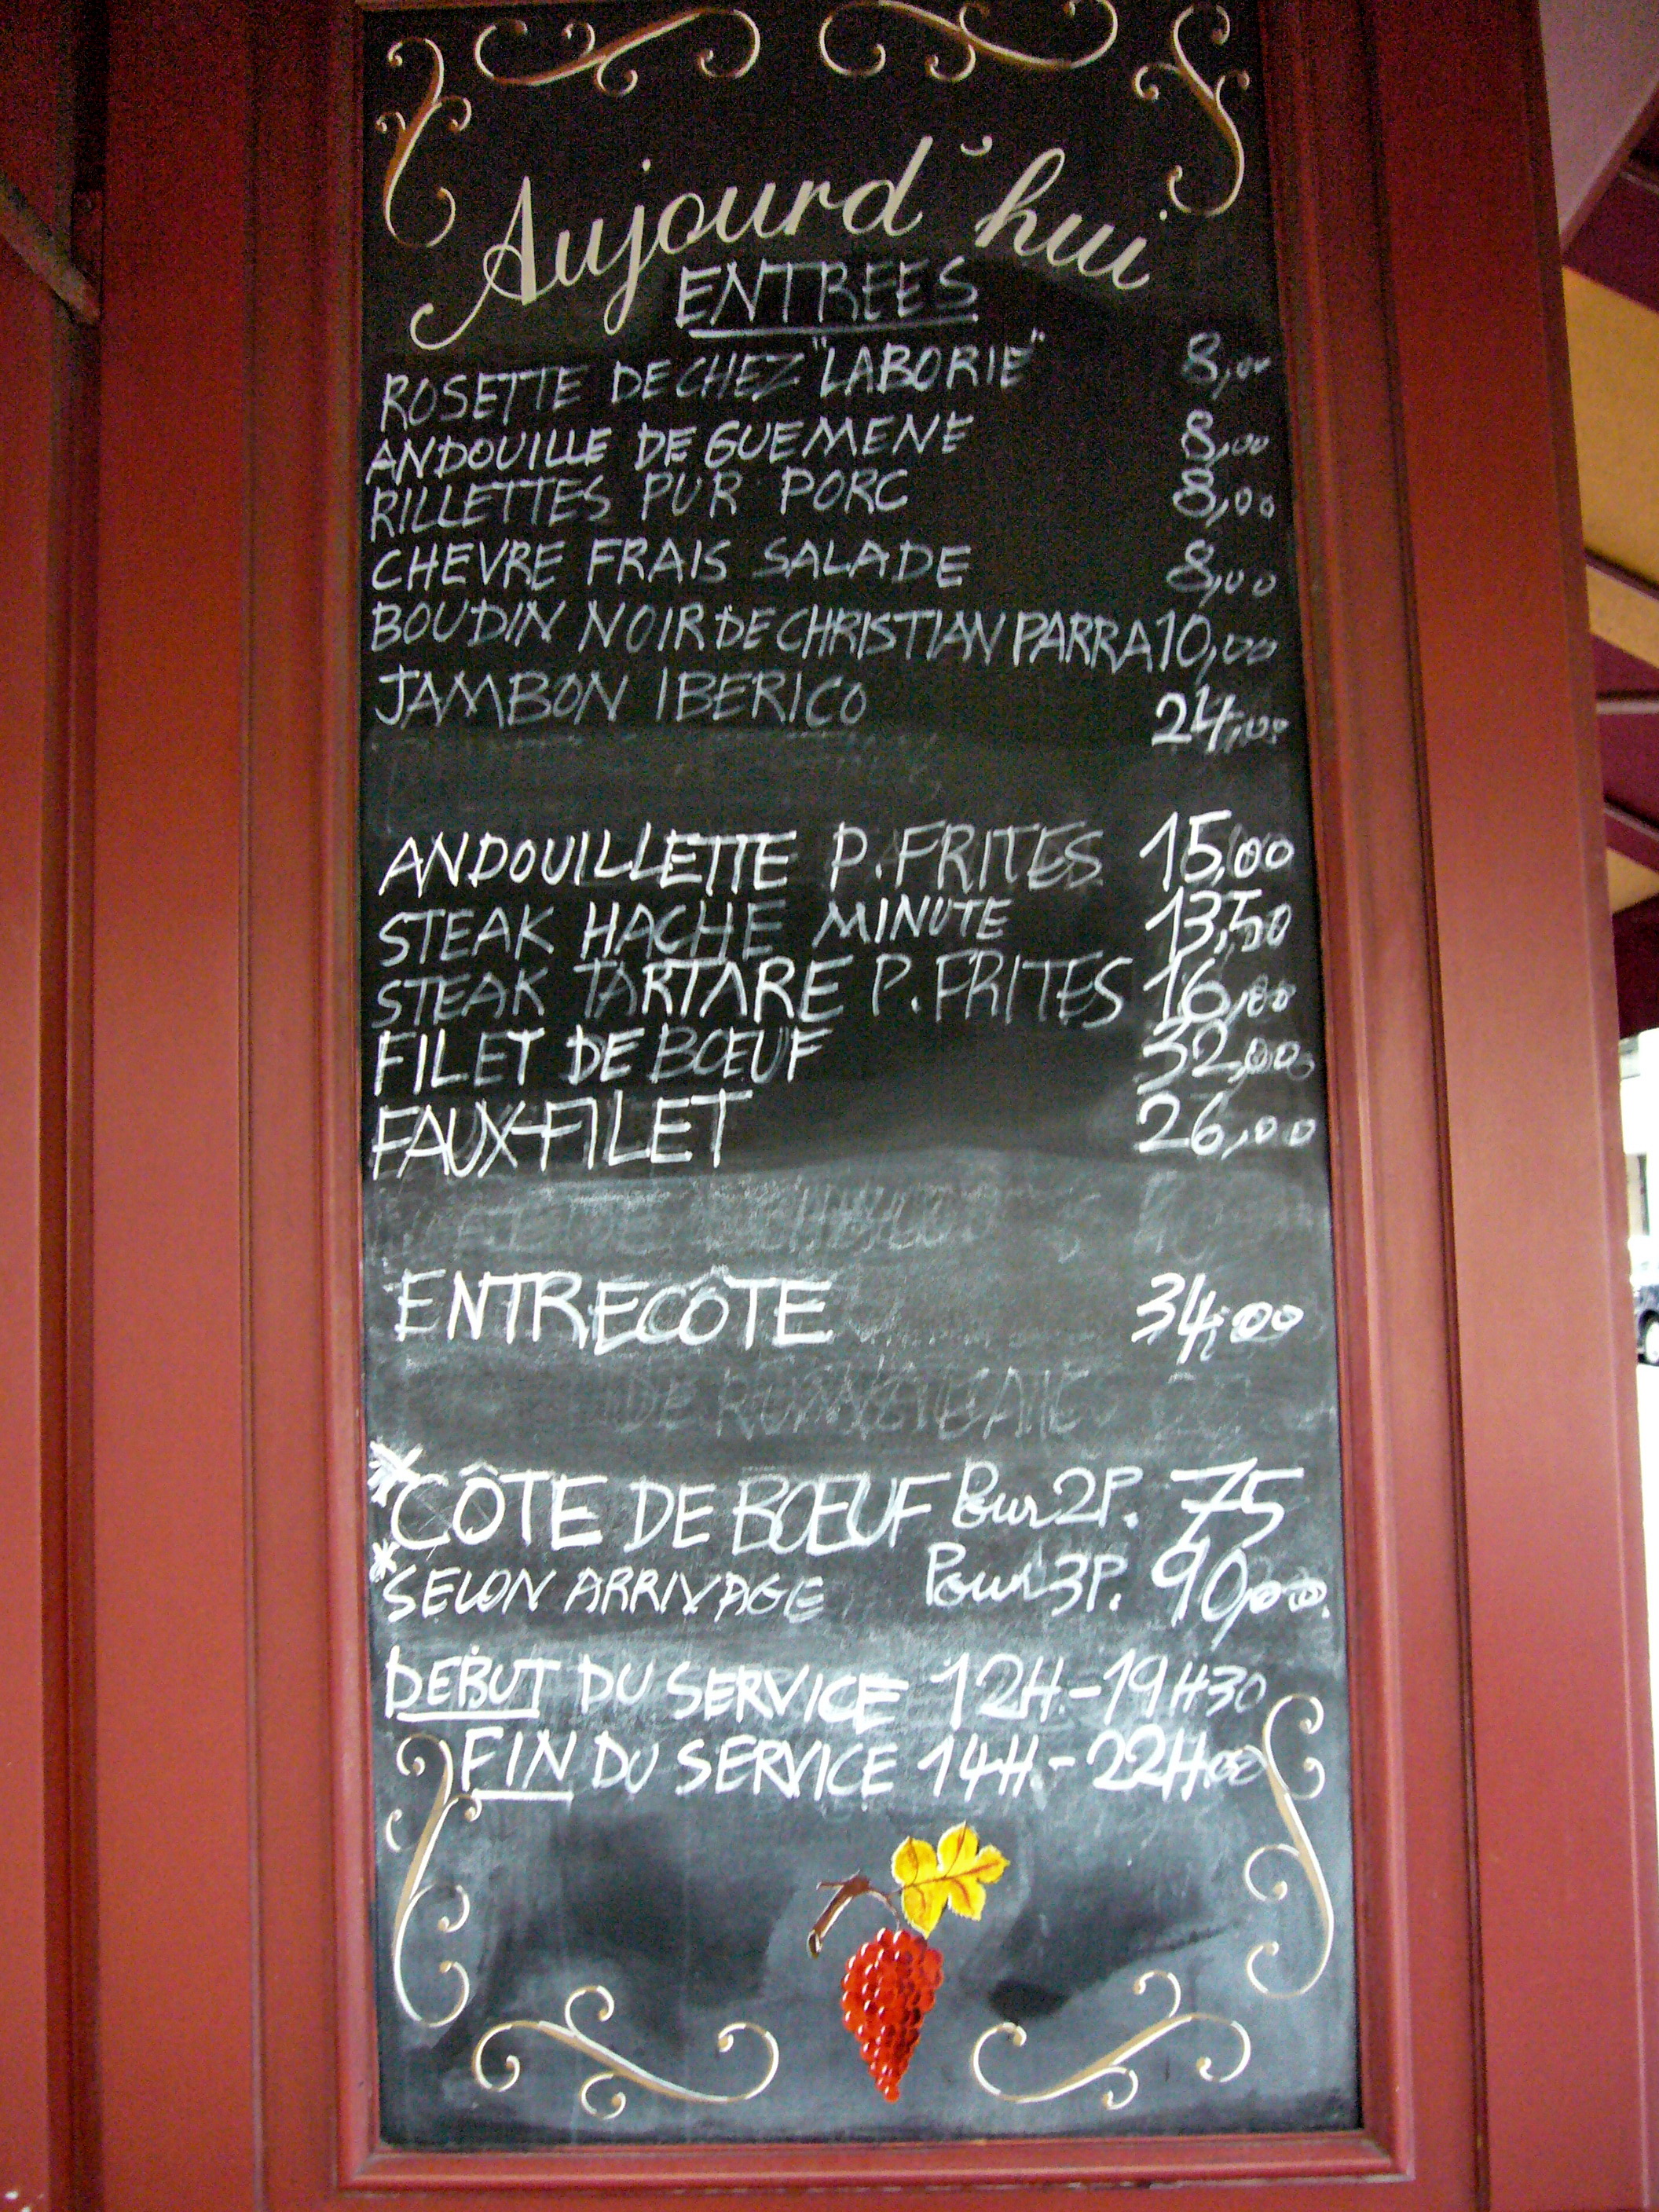 Aujourd'hui
ENTREES
ROSETTE DE CHEZ "LABORIE" 8,00
ANDOUILLE DE GUEMENE 8,00
RILLETTES PUR PORC 8,00
CHEVRE FRAIS SALADE 8,00
BOUDIN NOIR DE CHRISTIAN PARRA 10,00
JAMBON IBERICO 24,00
ANDOUILLETTE P.FRITES 15,00
STEAK HACHE MINUTE 13,50
STEAK TARTARE P.FRITES 16,00
FILET DE BŒUF 32,00
FAUX-FILET 26,00
ENTRECÔTE 34,00
*CÔTE DE BŒUF Pour 2P. 75
*SELON ARRIVAGE Pour 3P. 90,00
DEBUT DU SERVICE 12H.-19H30
FIN DU SERVICE 14H.-22H00